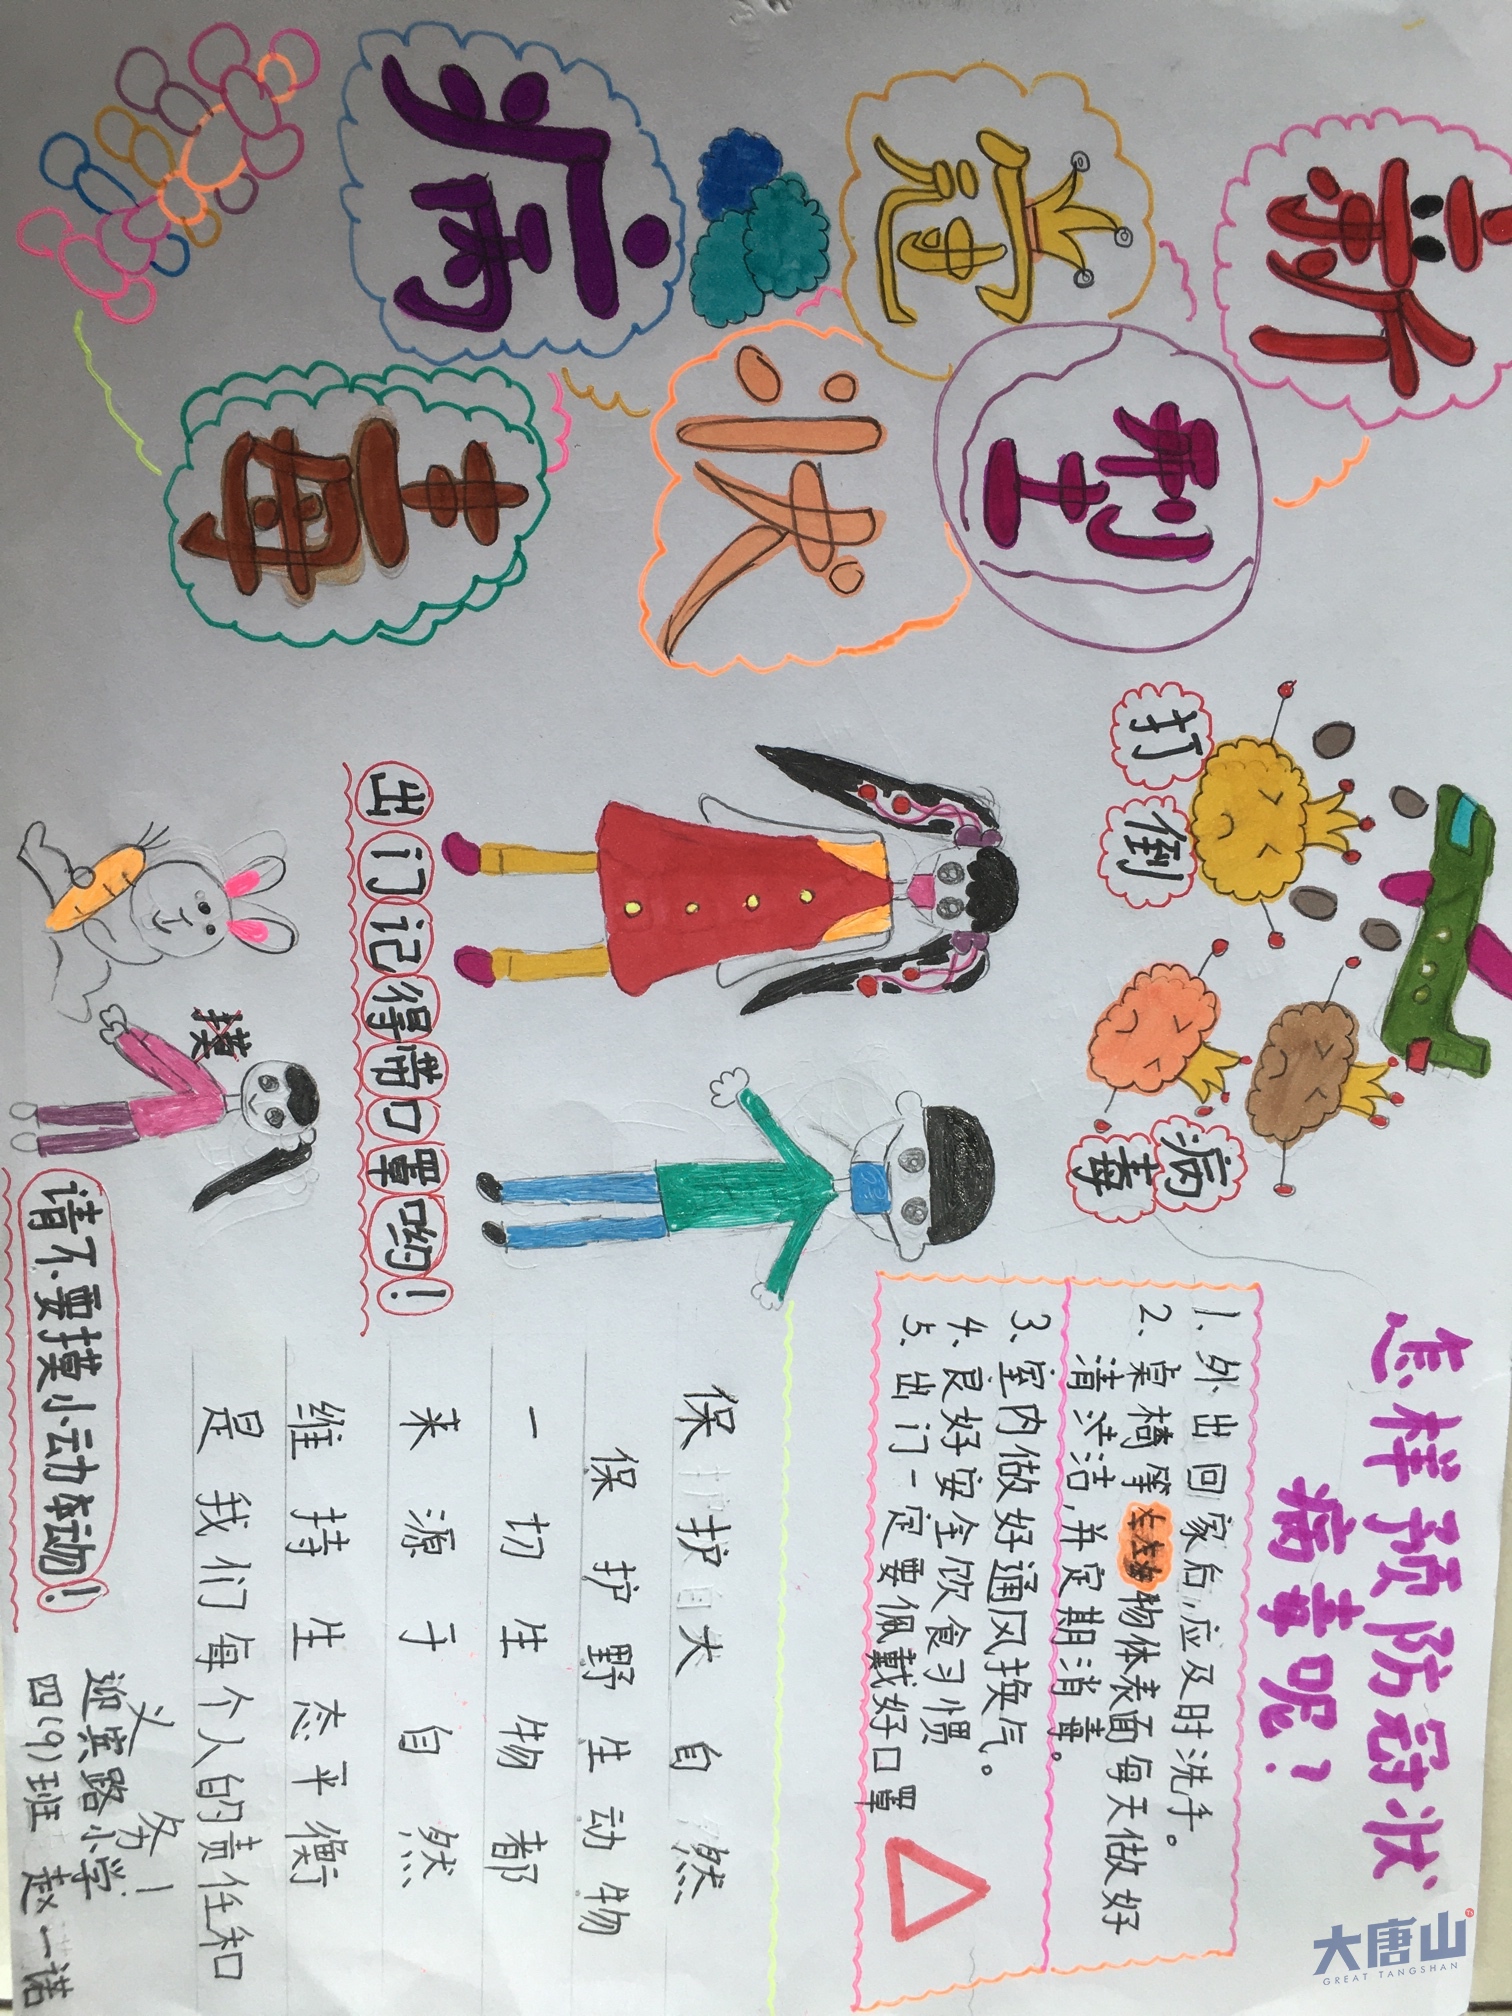 新型冠状病毒
打倒
病毒
怎样预防冠状
病毒呢?
1. 外出回家后,应及时洗手。
2. 桌椅等物体表面每天做好
清洁,并定期消毒。
3. 室内做好通风换气。
4. 良好安全饮食习惯
5. 出门一定要佩戴好口罩
出门记得带口罩哟!
摸
请不要摸小动本动物!
保护大自然
保护野生动物
一切生物都
来源于自然
维持生态平衡
是我们每个人的责任和
义务!
迎宾路小学
四(9)班 赵一诺
大唐山
GREAT TANGSHAN